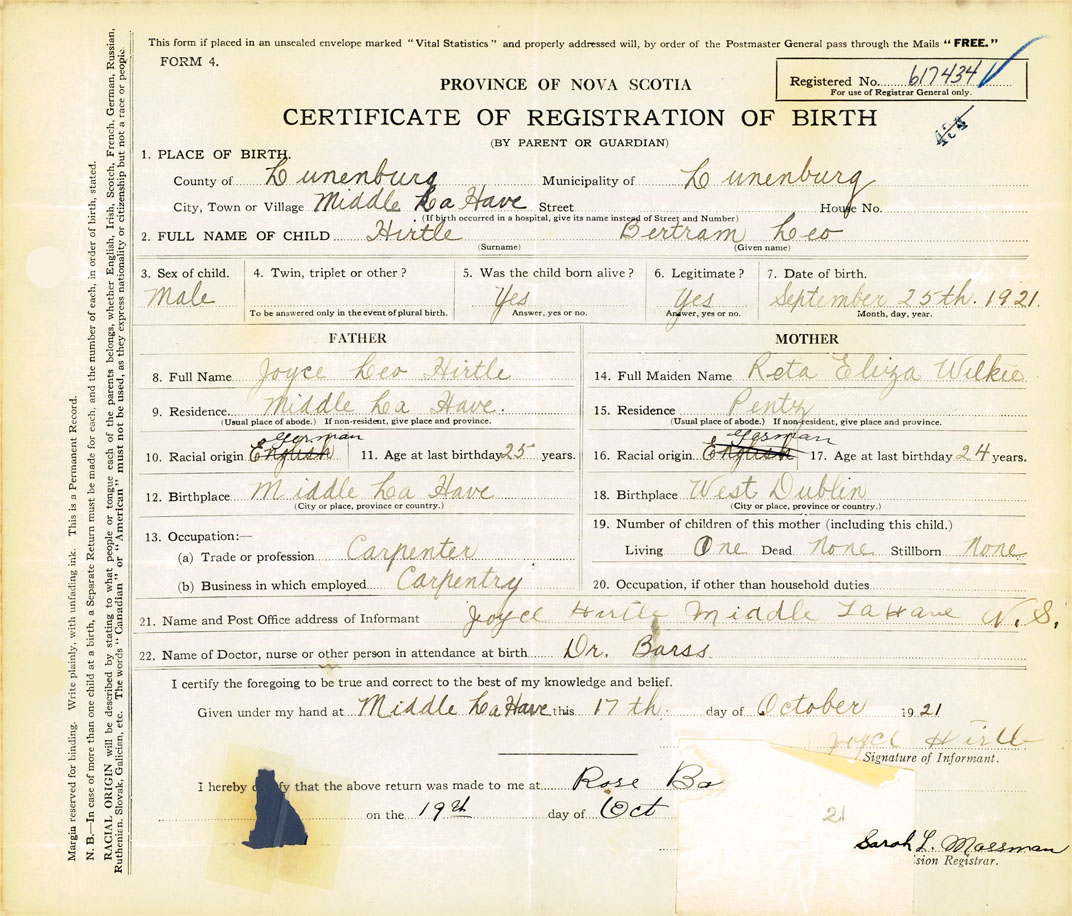 This form if placed in an unsealed envelope marked "Vital Statistics" and properly addressed will, by order of the Postmaster General pass through the Mails "FREE."
FORM 4.
Registered No. 617434
For use of Registrar General only.
PROVINCE OF NOVA SCOTIA
CERTIFICATE OF REGISTRATION OF BIRTH
(BY PARENT OR GUARDIAN)
1. PLACE OF BIRTH.
County of Lunenburg Municipality of Lunenburg
City, Town or Village Middle La Have Street House No.
(If birth occurred in a hospital, give its name instead of Street and Number)
2. FULL NAME OF CHILD Hirtle Bertram Leo
(Surname) (Given name)
3. Sex of child. 4. Twin, triplet or other? 5. Was the child born alive? 6. Legitimate? 7. Date of birth.
Male Yes Yes September 25th. 1921.
To be answered only in the event of plural birth. Answer, yes or no. Answer, yes or no. Month, day, year.
FATHER
8. Full Name Joyce Leo Hirtle
9. Residence Middle La Have.
(Usual place of abode.) If non-resident, give place and province.
German
10. Racial origin English 11. Age at last birthday 25 years.
12. Birthplace Middle La Have
(City or place, province or country.)
13. Occupation:—
(a) Trade or profession Carpenter
(b) Business in which employed Carpentry
MOTHER
14. Full Maiden Name Reta Eliza Wilkie
15. Residence Pentz
(Usual place of abode.) If non-resident, give place and province.
German
16. Racial origin English 17. Age at last birthday 24 years.
18. Birthplace West Dublin
(City or place, province or country.)
19. Number of children of this mother (including this child.)
Living One Dead None Stillborn None
20. Occupation, if other than household duties
21. Name and Post Office address of Informant Joyce Hirtle Middle LaHave N.S.
22. Name of Doctor, nurse or other person in attendance at birth Dr. Barss.
I certify the foregoing to be true and correct to the best of my knowledge and belief.
Given under my hand at Middle La Have this 17th. day of October 1921
Joyce Hirtle
Signature of Informant.
I hereby fy that the above return was made to me at Rose Ba
on the 19th day of Oct
21
Sarah L. Mossman
sion Registrar.
Margin reserved for binding. Write plainly, with unfading ink. This is a Permanent Record.
N. B.—In case of more than one child at a birth, a Separate Return must be made for each, and the number of each, in order of birth, stated.
RACIAL ORIGIN will be described by stating to what people or tongue each of the parents belongs, whether English, Irish, Scotch, French, German, Russian,
Ruthenian, Slovak, Galician, etc. The words "Canadian" or "American" must not be used, as they express nationality or citizenship but not a race or people